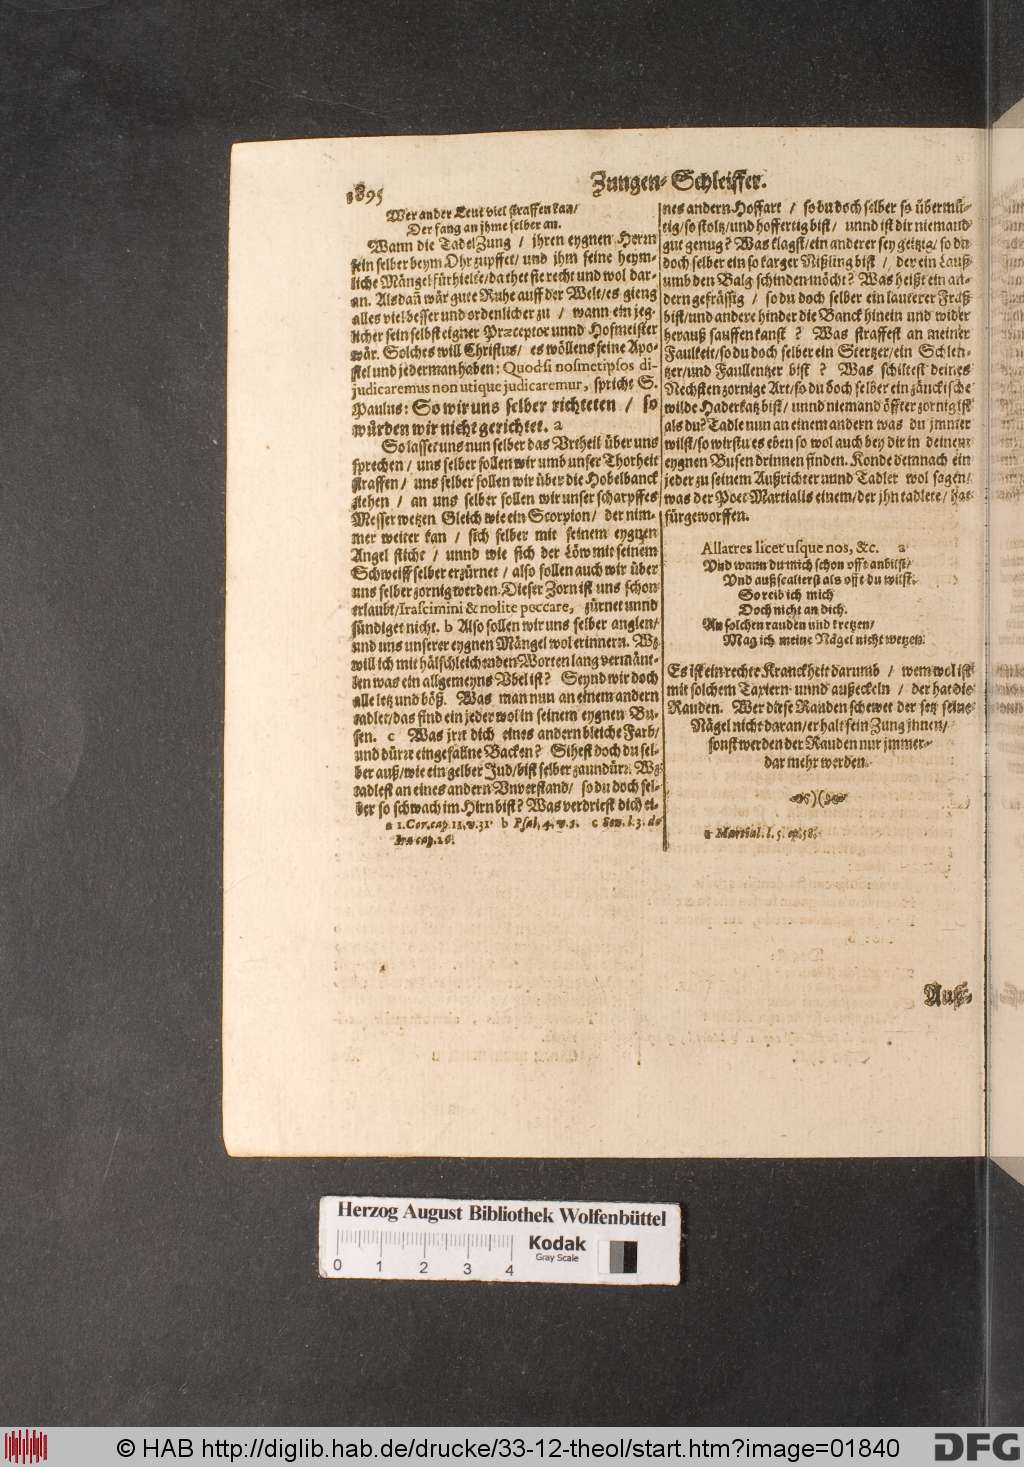 1895
Zungen-Schleiffer.
Wer ander Leut viel straffen kan/
Der fang an jhme selber an.
Wann die TadelZung / jhren eygnen Herrn
sein selber beym Ohr zupffet/ und jhm seine heym-
liche Mängel fürhielte/da thet sie recht und wol dar-
an. Als dañ wär gute Ruhe auff der Welt/es gieng
alles viel besser und ordenlicher zu / wann ein jeg-
licher sein selbst eigner Præceptor unnd Hofmeister
wär. Solches will Christus/ es wöllens seine Apo-
stel und jederman haben: Quod si nosmetipsos di-
judicaremus non utique judicaremur, spricht S.
Paulus: So wir uns selber richteten / so
würden wir nicht gerichtet. a
So lasset uns nun selber das Vrtheil über uns
sprechen / uns selber sollen wir umb unser Thorheit
straffen / uns selber sollen wir über die Hobelbanck
ziehen / an uns selber sollen wir unser scharpffes
Messer wetzen Gleich wie ein Scorpion/ der nim-
mer weiter kan / sich selber mit seinem eygnen
Angel sticht / unnd wie sich der Löw mit seinem
Schweiff selber erzürnet / also sollen auch wir über
uns selber zornig werden. Dieser Zorn ist uns schon
erlaubt/ Irascimini & nolite peccare, zürnet unnd
sündiget nicht. b Also sollen wir uns selber anglen/
und uns unserer eygnen Mängel wol erinnern. Wz
will ich mit hälschleichenden Worten lang vermänt-
len was ein allgemeyns Vbel ist? Seynd wir doch
alle letz und böß. Was man nun an einem andern
tadlet/das find ein jeder wol in seinem eygnen Bu-
sen. c Was jrrt dich eines andern bleiche Farb/
und dürre eingefallne Backen? Sihest doch du sel-
ber auß/wie ein gelber Jud/bist selber zaundürr. Wz
tadlest an eines andern Vnverstand/ so du doch sel-
ber so schwach im Hirn bist? Was verdriest dich ei-
a 1. Cor. cap. 11. v. 31. b Psal. 4. v. 5. c Sen. l. 3. de
Ira cap. 26.
nes andern Hoffart / so du doch selber so übermü-
tig/so stoltz/und hoffertig bist/ unnd ist dir niemand
gut genug? Was klagst/ein anderer sey geitzig/ so du
doch selber ein so karger Nißling bist / der ein Lauß
umb den Balg schinden möcht? Was heißt ein an-
dern gefrässig / so du doch selber ein lauterer Fraß
bist/und andere hinder die Banck hinein und wider
herauß sauffen kanst ? Was straffest an meiner
Faulkeit/so du doch selber ein Stertzer/ein Schlen-
tzer/und Faullentzer bist ? Was schiltest deines
Nechsten zornige Art/so du doch selber ein zänckische
wilde Haderkatz bist/ unnd niemand öffter zornig ist
als du? Tadle nun an einem andern was du jmmer
wilst/so wirstu es eben so wol auch bey dir in deinem
eygnen Busen drinnen finden. Konde demnach ein
jeder zu seinem Außrichter unnd Tadler wol sagen/
was der Poet Martialis einem/der jhn tadlete / hat
fürgeworffen.
Allatres licet usque nos, &c. a
Vnd wann du mich schon offt anbilst/
Vnd außscalierst als offt du wilst.
So reib ich mich
Doch nicht an dich.
An solchen rauden und kretzen/
Mag ich meine Nägel nicht wetzen.
Es ist ein rechte Kranckheit darumb / wem wol ist
mit solchem Taxiern unnd außeckeln / der hat die
Rauden. Wer diese Rauden schewet der setz seine
Nägel nicht daran/er halt sein Zung jnnen/
sonst werden der Rauden nur jmmer-
dar mehr werden.
a Martial. l. 5. ep. 58.
Auß-
Herzog August Bibliothek Wolfenbüttel
Kodak
Gray Scale
0 1 2 3 4
© HAB http://diglib.hab.de/drucke/33-12-theol/start.htm?image=01840
DFG